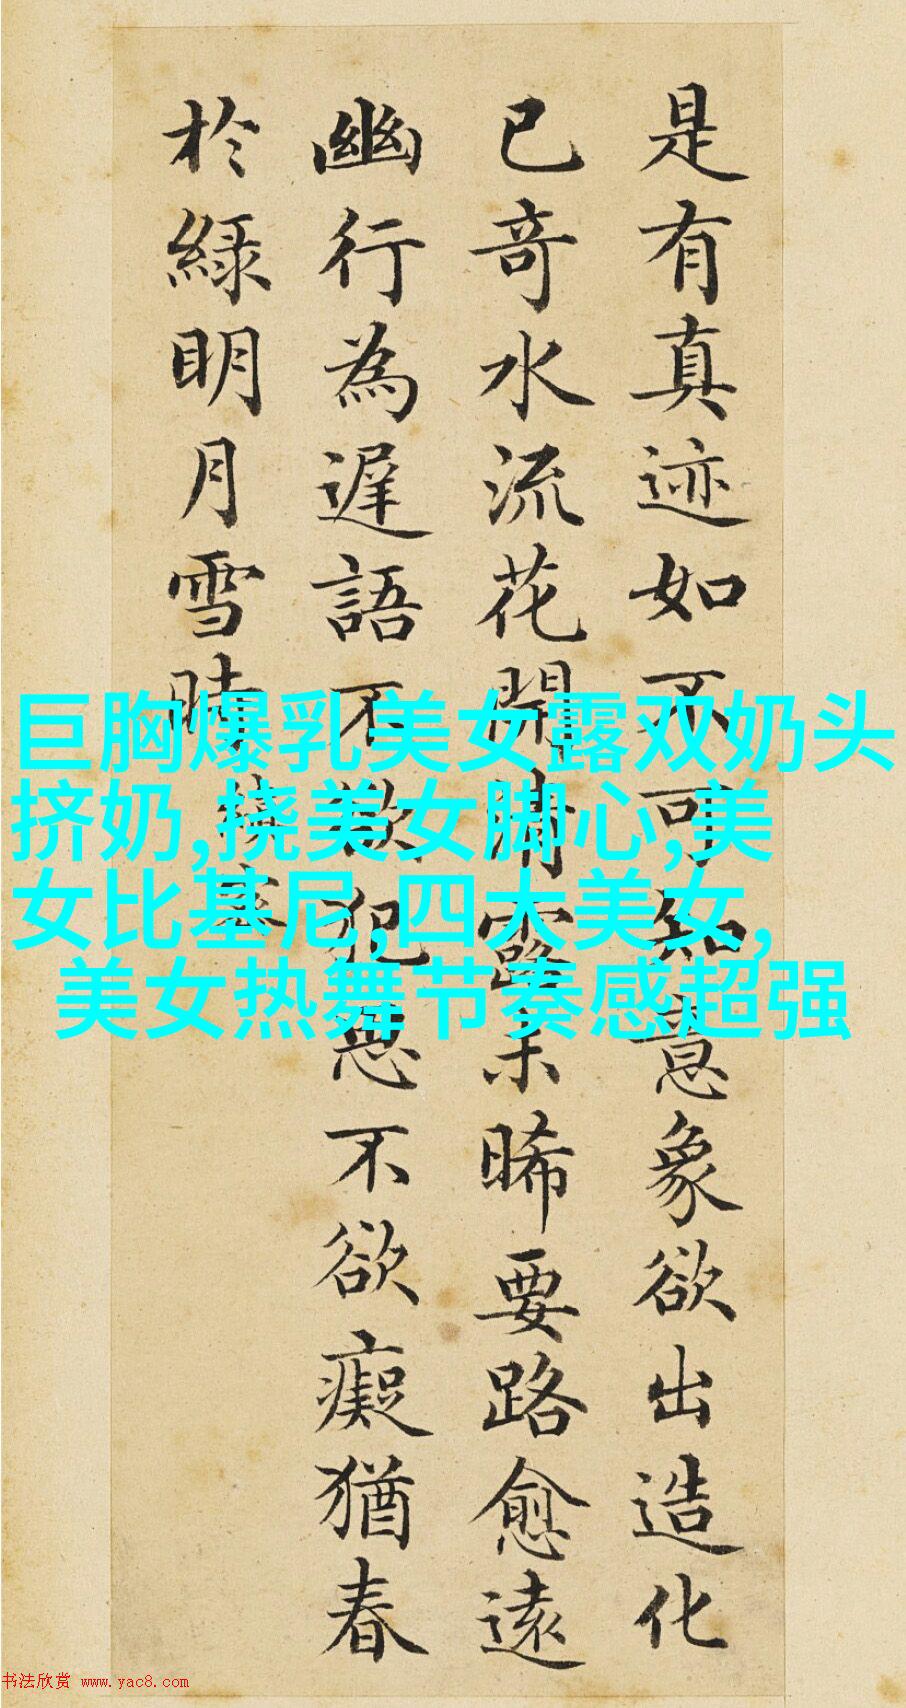 是有真迹如不可知意象欲出造化
已奇水流花開清露未晞要路愈遠
幽行為遲語不欲犯思不欲癡猶春
於綠明月雪時
縝密
巨胸爆乳美女露双奶头
挤奶,挠美女脚心,美
女比基尼,四大美女,
美女热舞节奏感超强
书法欣赏 www.yac8.com